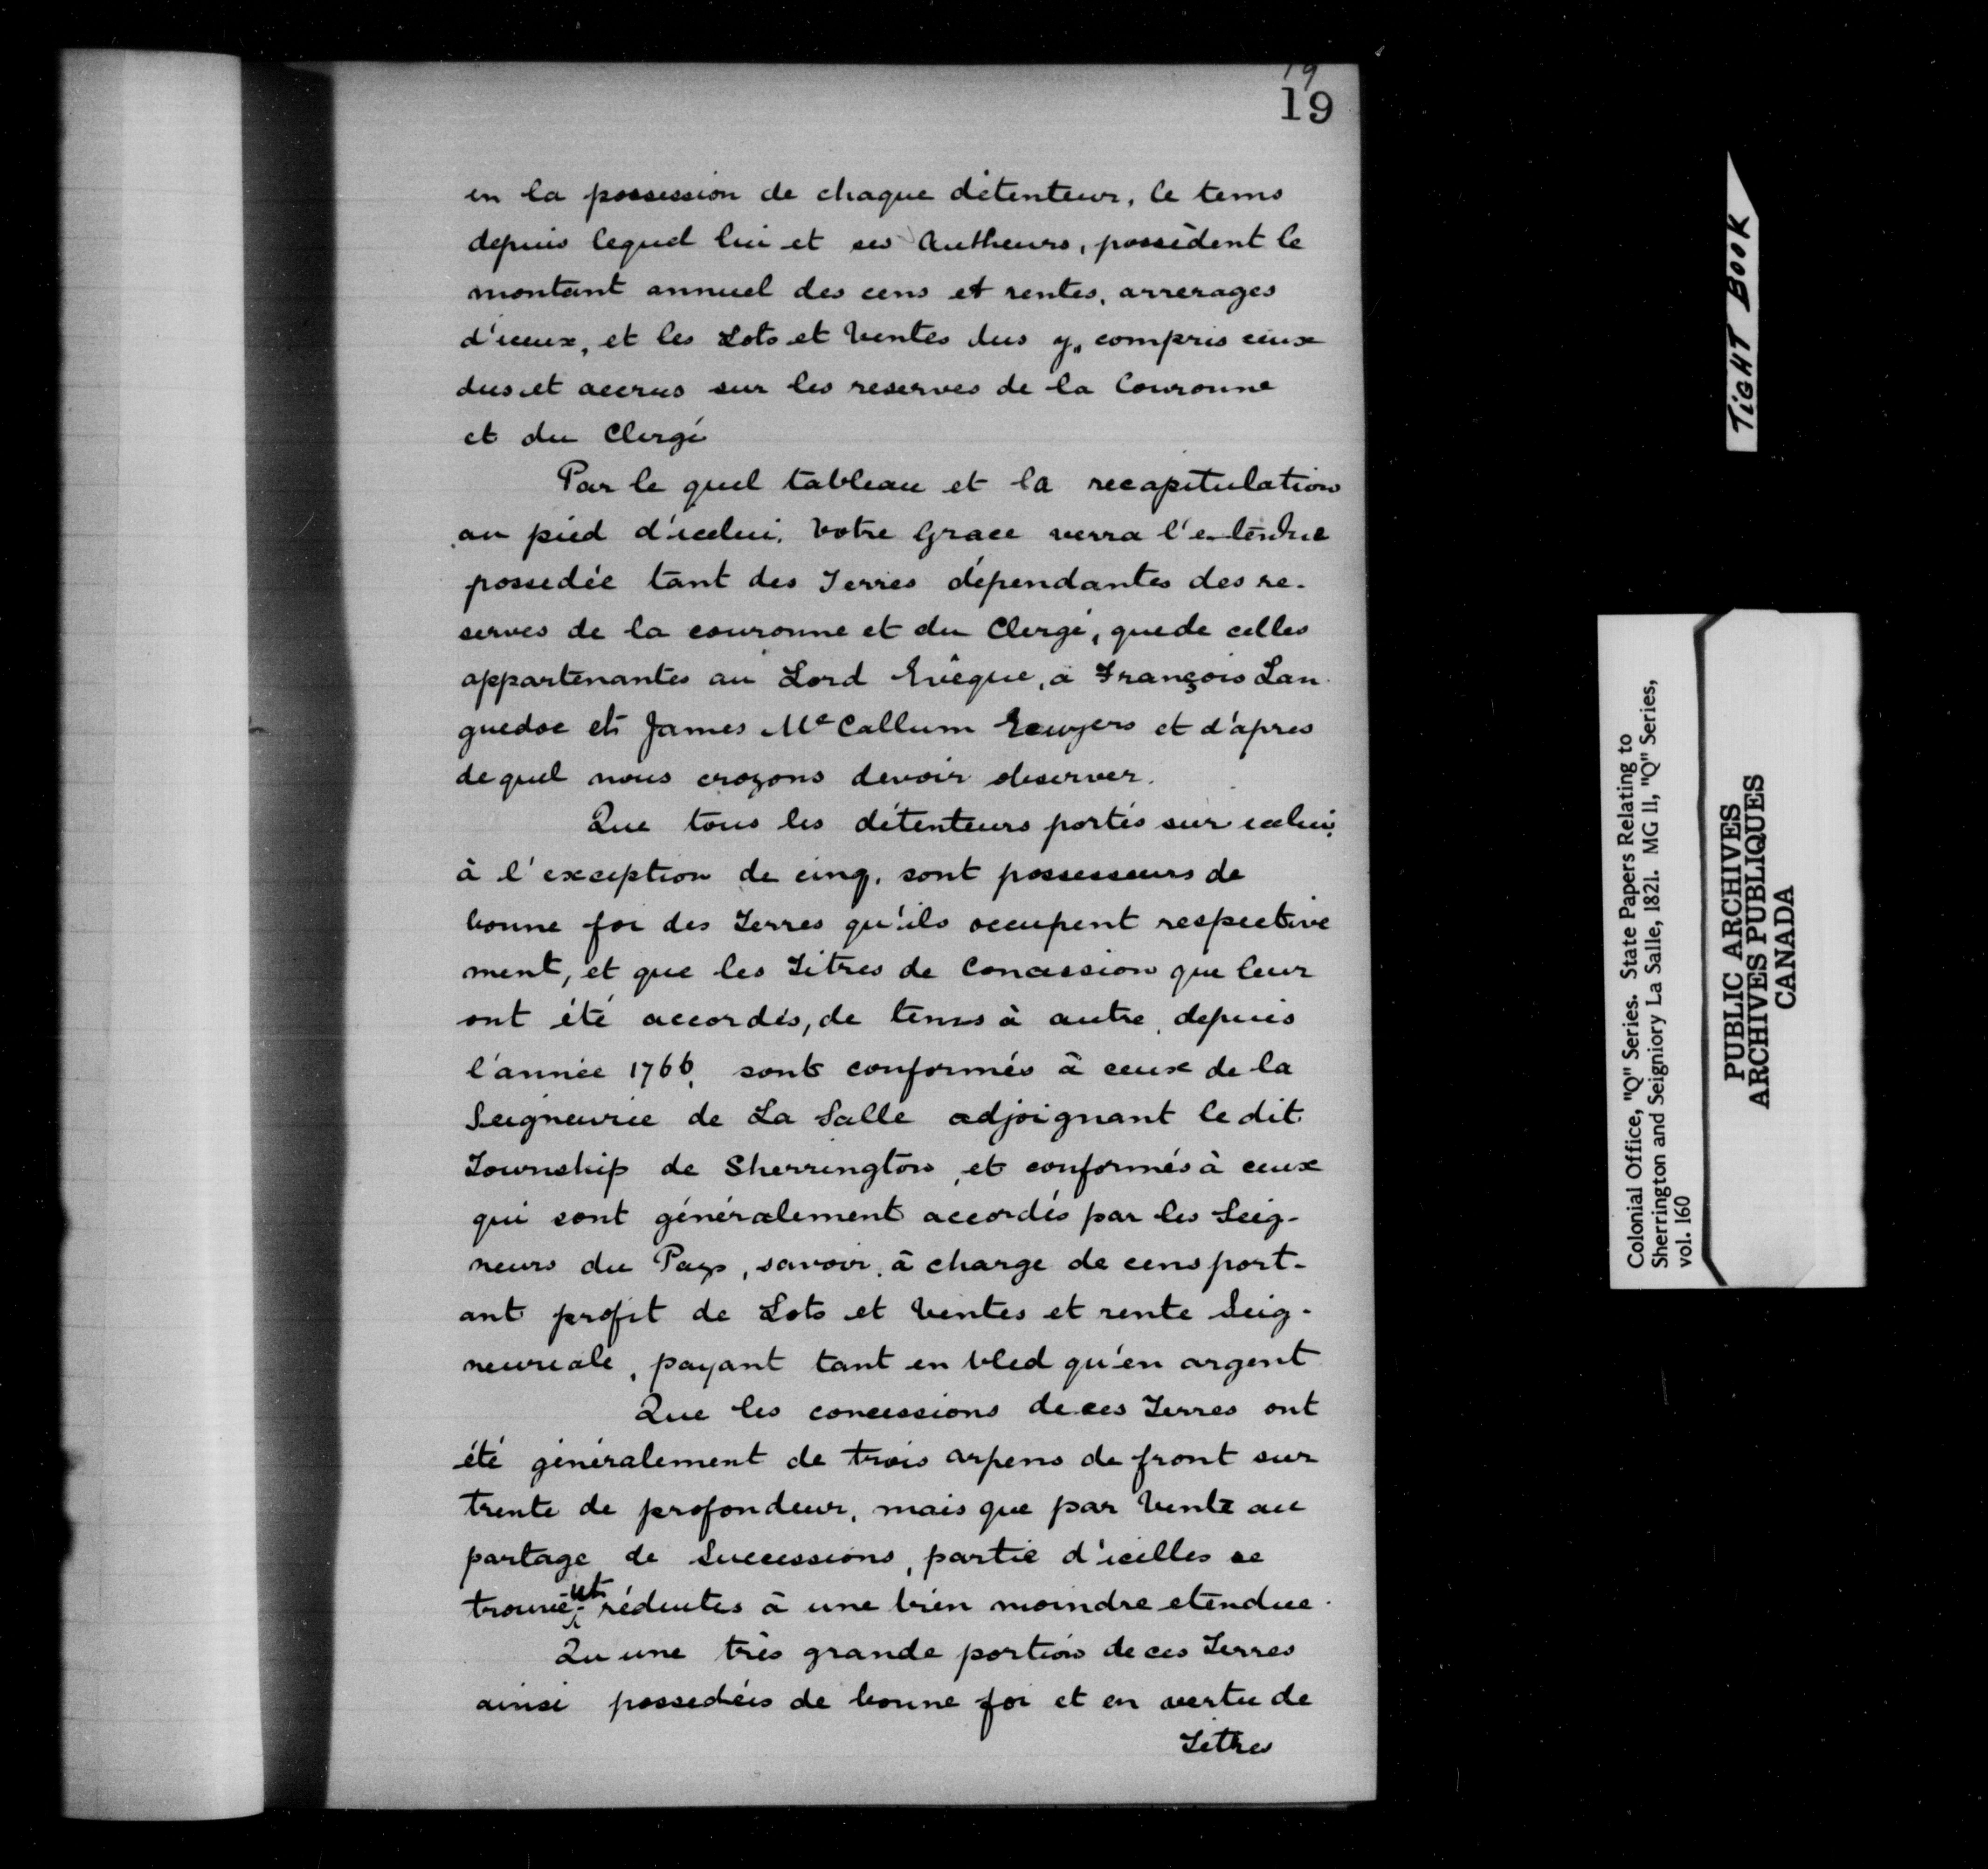 19
19
en la possession de chaque détenteur, le tems
depuis lequel lui et ses Autheurs, possèdent le
montant annuel des cens et rentes, arrerages
d'iceux, et les Lots et Ventes dus y, compris ceux
dus et accrus sur les reserves de la Couronne
et du Clergé
Par le quel tableau et la recapitulation
au pied d'icelui, Votre Grace verra l'etendue
possedée tant des Terres dépendantes des re-
serves de la couronne et du Clergé, que de celles
appartenantes au Lord Evêque, à François Lan-
guedoc et James Mc Callum Ecuyers et d'apres
le quel nous croyons devoir observer.
Que tous les détenteurs portés sur icelui,
à l'exception de cinq, sont possesseurs de
bonne foi des Terres qu'ils occupent respective
ment, et que les Titres de Concession que leur
ont été accordés, de tems à autre, depuis
l'année 1766, sont conformés à ceux de la
Seigneurie de La Salle adjoignant le dit
Township de Sherrington, et conformés à ceux
qui sont généralement accordés par les Seig-
neurs du Pays, savoir, à charge de cens port-
ant profit de Lots et Ventes et rente Seig-
neuriale, payant tant en bled qu'en argent
Que les concessions de ces Terres ont
été généralement de trois arpens de front sur
trente de profondeur, mais que par Vente au
partage de Successions, partie d'icelles se
trouvent réduites à une bien moindre etendue.
Qu une très grande portion de ces Terres
ainsi possedées de bonne foi et en vertu de
Titres
TIGHT BOOK
Colonial Office, "Q" Series. State Papers Relating to
Sherrington and Seigniory La Salle, 1821. MG 11, "Q" Series,
vol. 160
PUBLIC ARCHIVES
ARCHIVES PUBLIQUES
CANADA